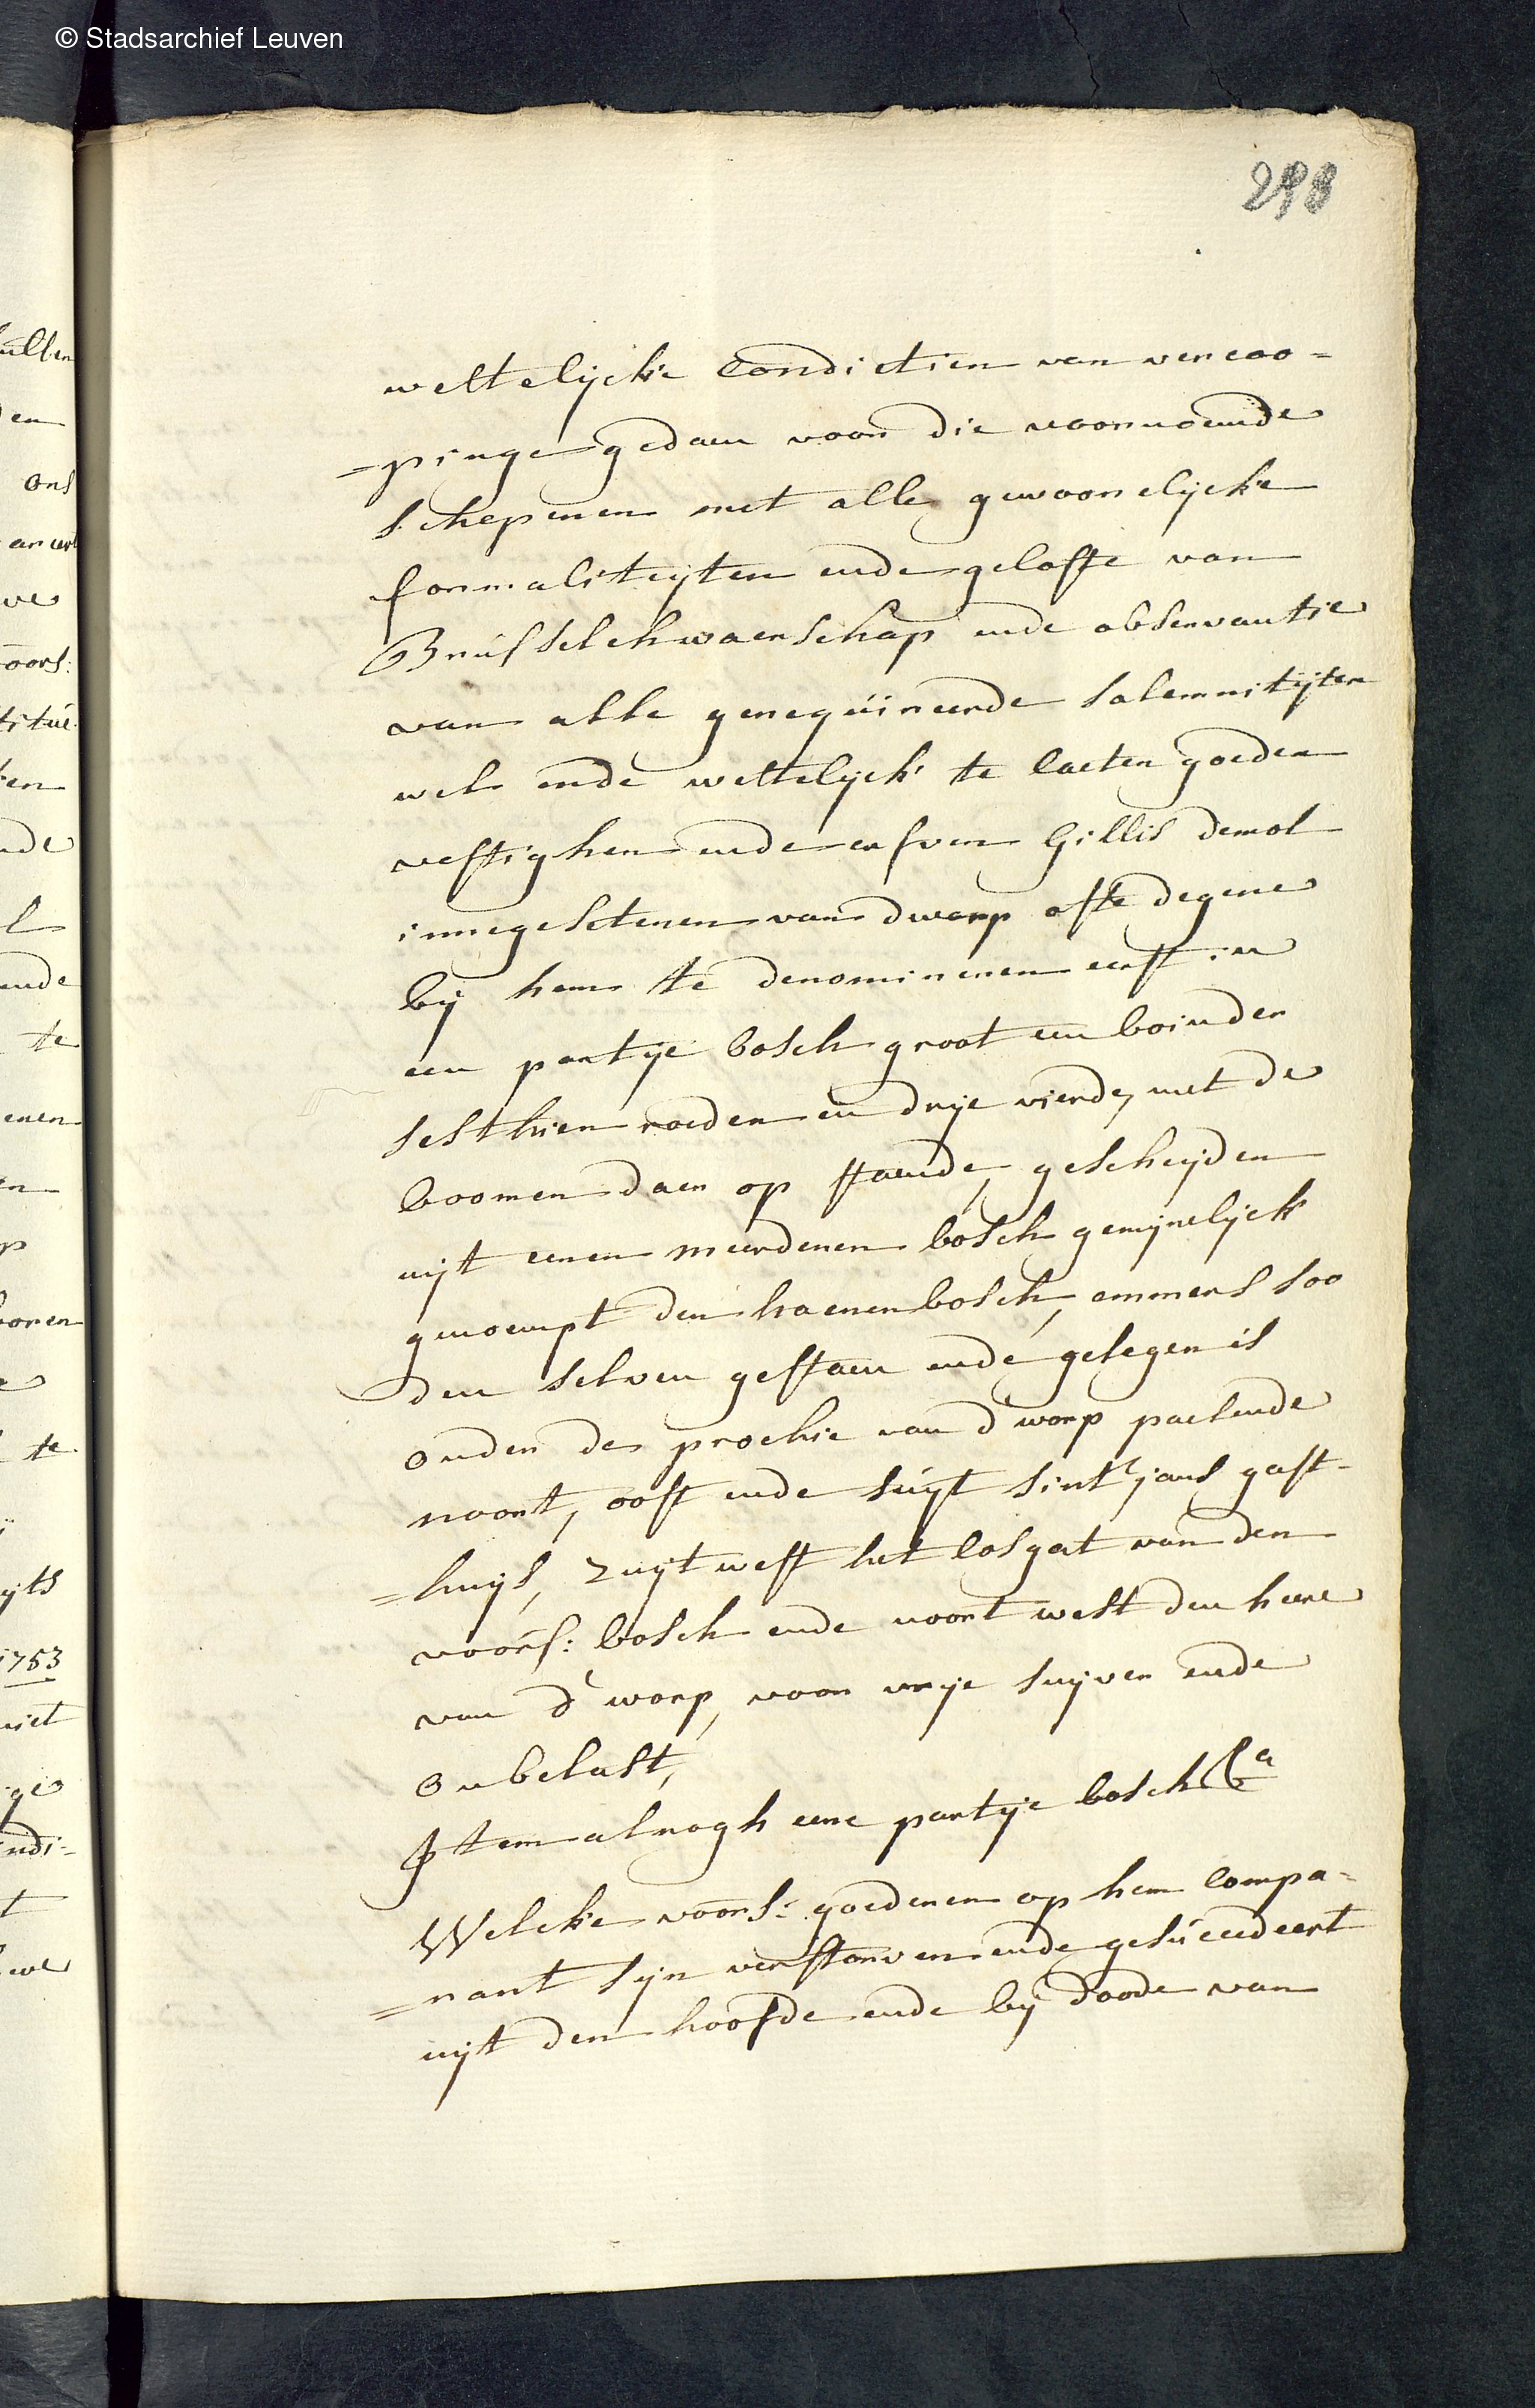 © Stadsarchief Leuven
298
wettelijcke Condictien van vercoo-
=pinge gedaen voor die voornoemde
schepenen met alle gewoonelijcke
formaliteijten ende gelofte van
Brusselch waerschap ende observantie
van alle gerequireerde solemnitijten
wel ende wettelijck te laeten goeden
vestighen ende erfven Gillis demol
innegesetenen van dworp ofte degene
bij hem te denomineren eerst in
een partije bosch groot een boinder
sesthien roeden en drije vierde, met de
boomen daer op staende, gescheijden
uijt eenen meerderen bosch gemijnelijck
genoempt den haenenbosch, emmers soo
den selven gestaen ende gelegen is
onder de prochie van d'worp paelende
noort, oost ende suijt sint jans gast-
=huijs, zuijtwest het losgat van den
voors: bosch ende noort west den heere
van d'worp, voor vrije suijver ende
onbelast,
Item alnogh eene partije bosch &a
Welcke voors: goederen op hem Compa-
=rant sijn verstorven ende gesucceedeert
uijt den hoofde ende bij doode van
ons
1753